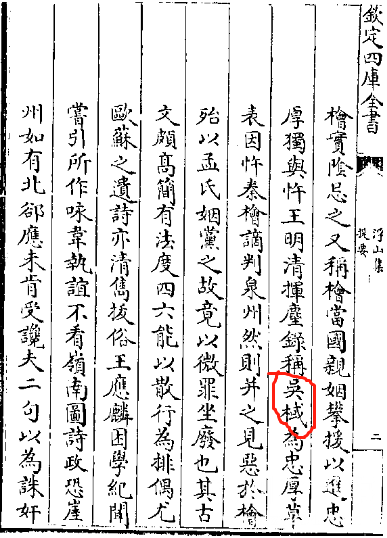 欽定四庫全書
浮山集
提要
二
檜實隂忌之又稱檜當國親姻攀援以進忠
厚獨與忤王明清揮塵錄稱吳棫為忠厚草
表因忤秦檜謫判泉州然則并之見惡於檜
殆以孟氏姻黨之故竟以微罪坐廢也其古
文頗髙簡有法度四六能以散行為排偶尤
歐蘇之遺詩亦清雋拔俗王應麟困學紀聞
嘗引所作咏韋執誼不看嶺南圖詩政恐崖
州如有北郤應未肯受讒夫二句以為誅奸